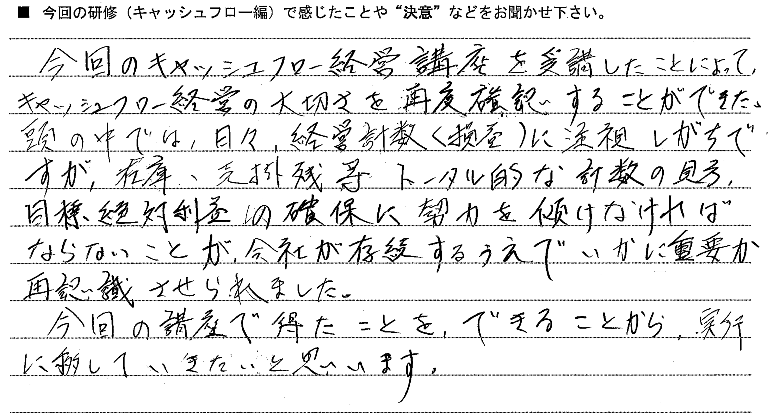 ■ 今回の研修（キャッシュフロー編）で感じたことや“決意”などをお聞かせ下さい。
今回のキャッシュフロー経営講座を受講したことによって、
キャッシュフロー経営の大切さを再度確認することができた。
頭の中では、日々、経営計数（損益）に注視しがちで
すが、在庫、売掛残等トータル的な計数の見方、
目標、絶対利益の確保に努力を傾けなければ
ならないことが、会社が存続するうえでいかに重要か
再認識させられました。
今回の講座で得たことを、できることから、実行
に移していきたいと思います。